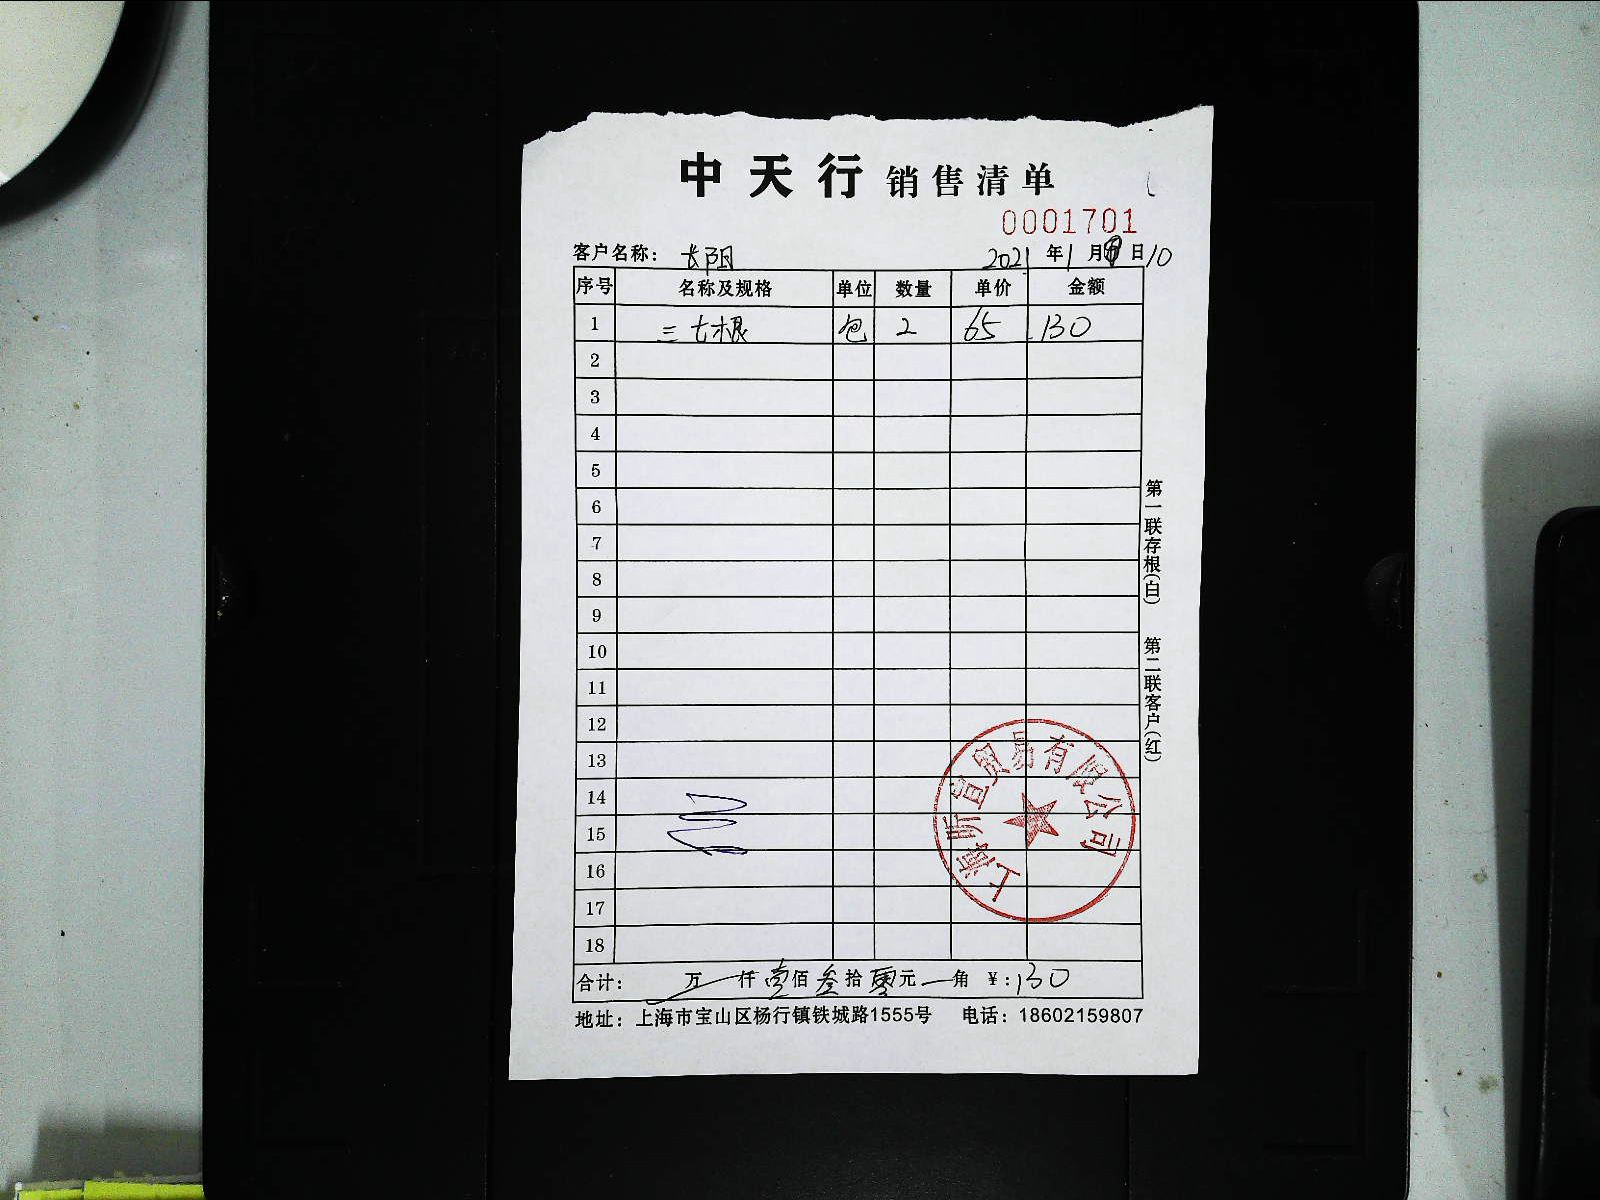 中天行 销售清单
0001701
客户名称： 长阳 2021 年 1 月 日 10
序号 名称及规格 单位 数量 单价 金额
1 三七根 包 2 65 130
2
3
4
5
6
7
8
9
10
11
12
13
14
15
16
17
18
合计： 万 仟 壹佰 叁拾 零元 角 ¥:130
地址：上海市宝山区杨行镇铁城路1555号 电话：18602159807
第一联存根(白) 第二联客户(红)
上海昕宜贸易有限公司